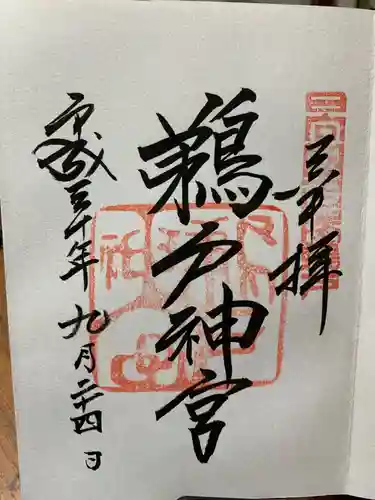 奉拝
鵜戸神宮
平成三十年九月二十四日